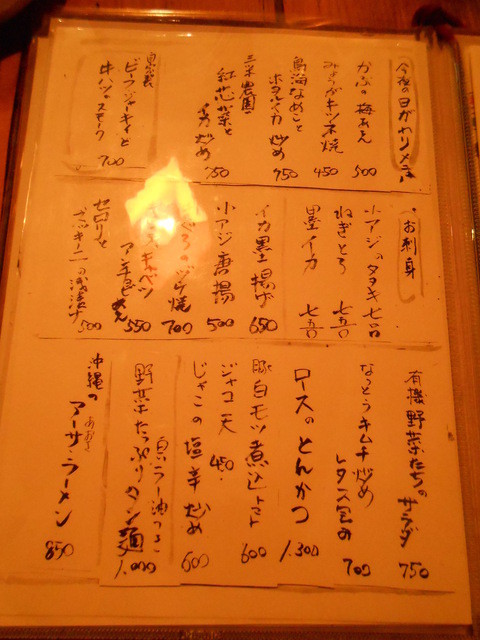 今夜の日がわりメニュー
かぶの梅あえ 500
みょうがキツネ焼 450
鳥海なめこと
ホタルイカ炒め 750
三米農園
紅花菜と
イカ炒め 750
自家製
ビーフジャーキィと
牛ハツのスモーク 700
お刺身
小アジのタタキ 七五〇
ねぎとろ 七五〇
墨イカ 七五〇
イカ墨揚げ 650
小アジ唐揚 500
まぐろのヅケ焼 700
キャベツ
アンチョビ炒め 550
セロリと
ズッキーニの浅漬け 500
有機野菜たちのサラダ 750
なっとうキムチ炒め
レタス包み 700
ロースのとんかつ 1.300
豚白モツ煮込トマト 600
ジャコ天 450
じゃこの塩辛炒め 600
自家ラー油つき
野菜たっぷりタン麺 1.000
沖縄の
アーサ・ラーメン 850
あおさ